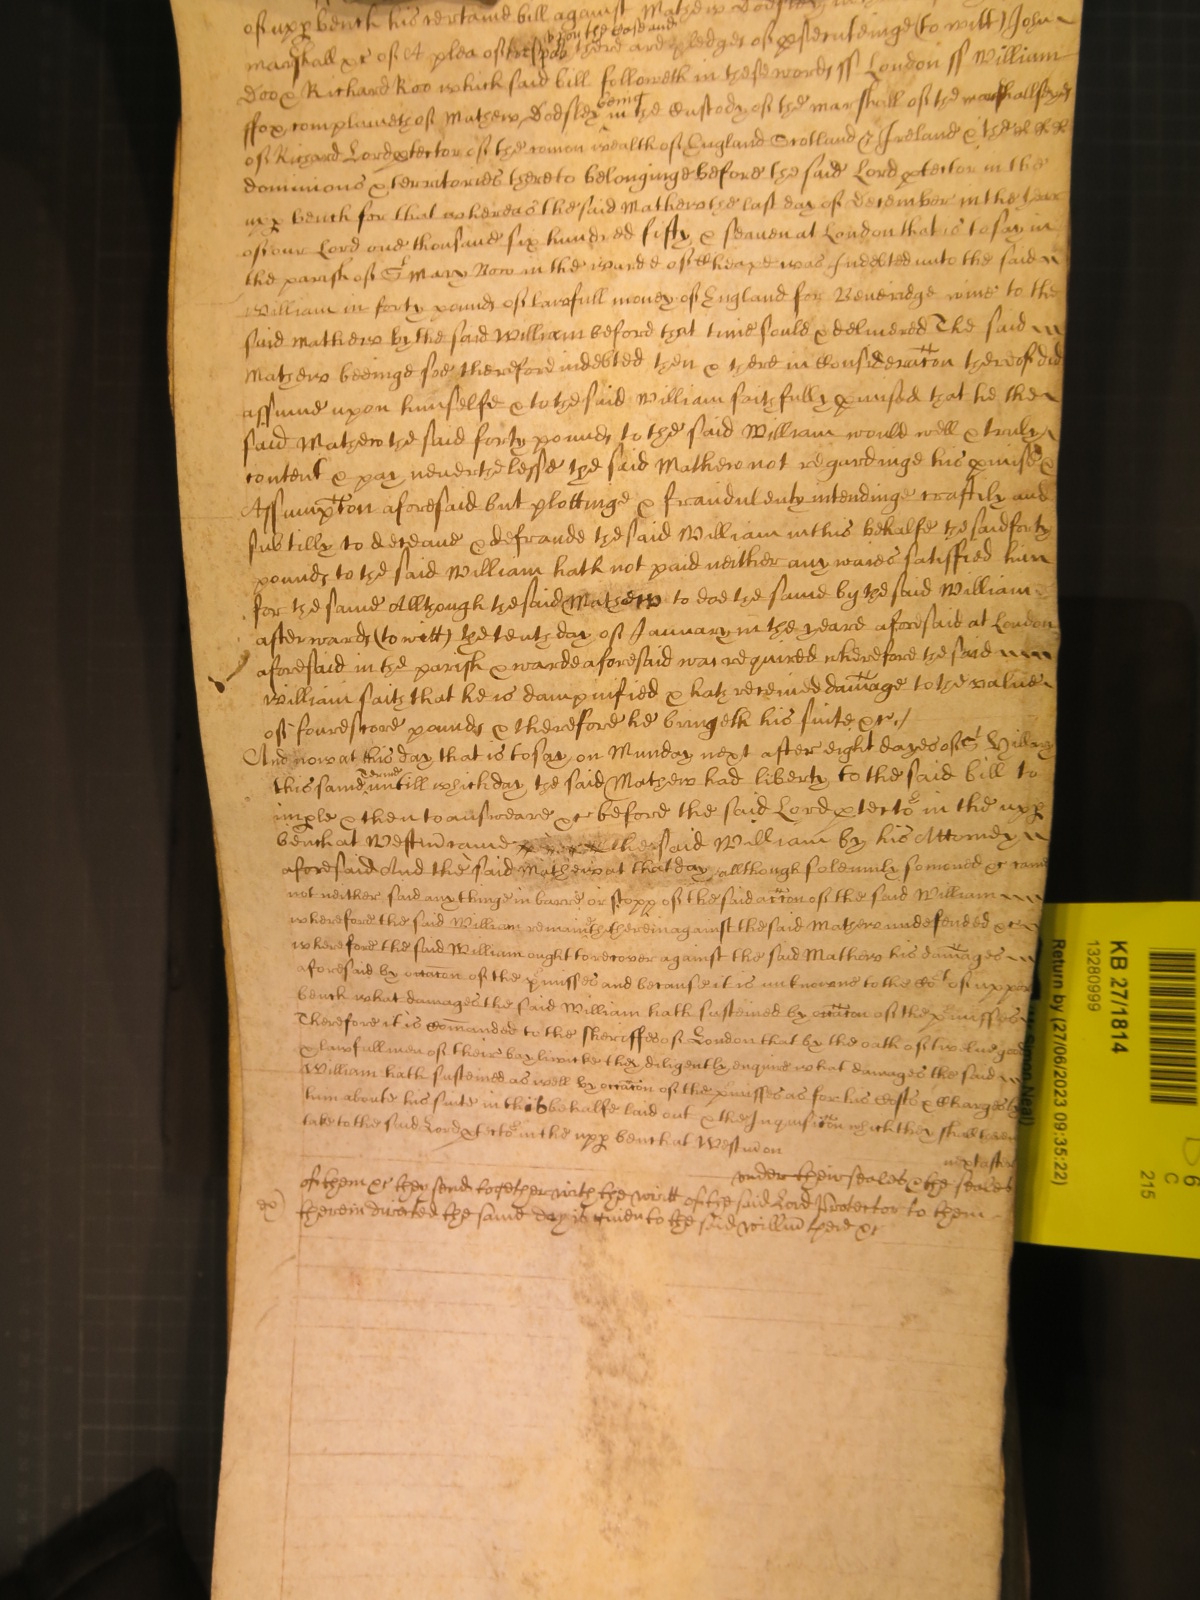 of upp bench his certaine bill against Mathew Dodsley in
marshall &c of A plea of trespas upon the case and there are pledges of psecuteinge (to witt) John
Doo & Richard Roo which said bill followeth in these words ss London ss William
ffox complaineth of Mathew Dodsley being in the Custody of the marshall of the marshallseyes
of Richard Lord ptector of the comon wealth of England Scotland & Ireland & the
dominions & territories thereto belonginge before the said Lord ptector in the
upp bench for that whereas the said Mathew the last day of December in the yeare
of our Lord one thousand six hundred fifty & seaven at London that is to say in
the parish of St Mary Bow in the warde of Cheape was Indebted unto the said
William in forty pounds of lawfull money of England for Beveridge wine to the
said Mathew by the said William before that time sould & delivered The said
Mathew beeinge soe therefore indebted then & there in Consideracon thereof did
assume upon himselfe & to the said William faithfully pmised that he the
said Mathew the said forty pounds to the said William would well & truly
content & pay neverthelesse the said Mathew not regardinge his pmise &
Assumpcon aforesaid but plottinge & fraudulently intendinge craftily and
subtilly to deceave & defraude the said William in this behalfe the said forty
pounds to the said William hath not paid neither any waies satisfied him
for the same Allthough the said Mathew to doe the same by the said William
afterwards (to witt) the tenth day of January in the yeare aforesaid at London
aforesaid in the parish & warde aforesaid was required wherefore the said
William saith that he is dampnified & hath received damage to the value
of fourescore pounds & therefore he bringeth his suite &c /
And now at this day that is to say on Munday next after eight dayes of St Hillary
this same Terme untill which day the said Mathew had liberty to the said bill to
imple & then to answeare &c before the said Lord ptector in the upp
bench at Westm came the said William by his Attorney
aforesaid And the said Mathew at that day allthough solemnly somoned &c came
not neither said any thinge in barre or stopp of the said accon of the said William
wherefore the said William remaineth therein against the said Mathew undefended &c
wherefore the said William ought to recover against the said Mathew his damages
aforesaid by occacon of the pmisses and because it is unknowne to the Cort of upper
bench what damages the said William hath susteined by occacon of the pmisses
Therefore it is Comanded to the sheriffes of London that by the oath of twelve good
& lawfull men of their baylywicke they diligently enquire what damages the said
William hath susteined as well by occacon of the pmisses as for his Costs & Charges by
him aboute his suite in this behalfe laid out & the Inquisicon which they shall therein
take to the said Lord ptector in the upp bench at Westm on
next after
under their seales & the seales
of them &c they send together with the writt of the said Lord Protector to them
therein directed the same day is given to the said Willm there &c
KB 27/1814
13280999
Return by (27/06/2023 09:35:22)
Simon Neal)
D6
C
215